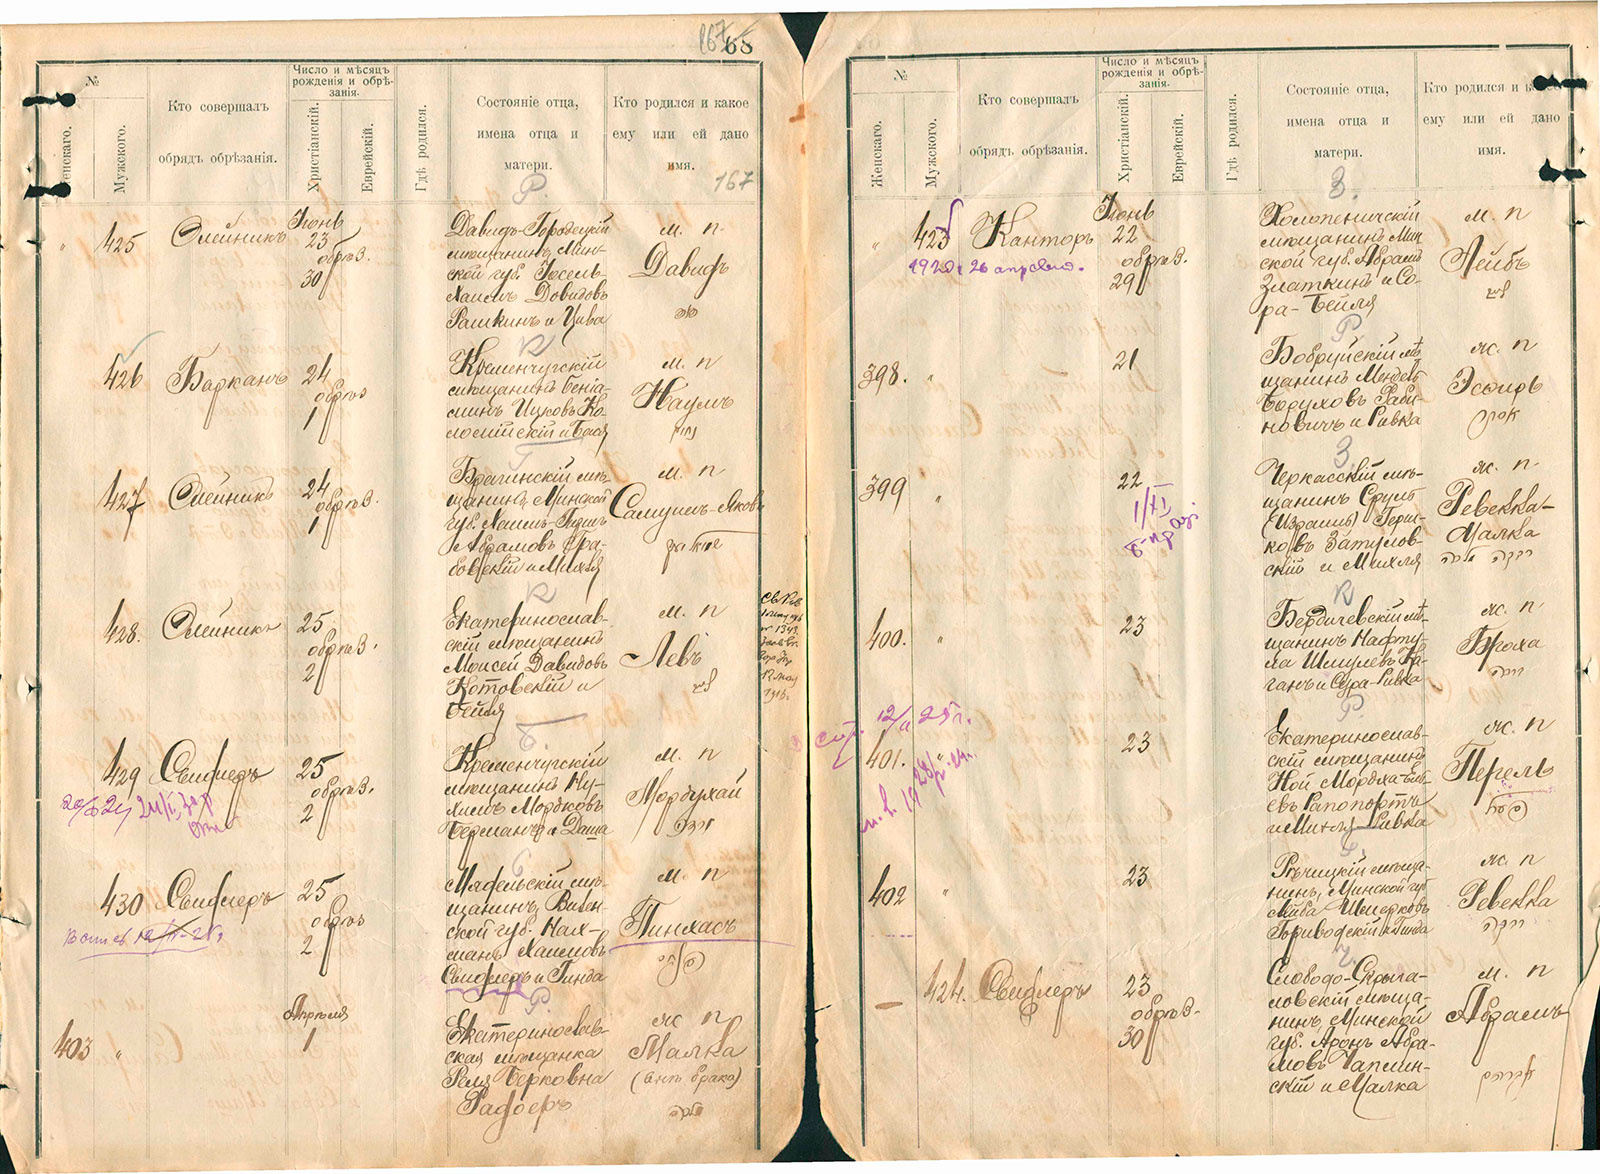 68
167
№
Женскаго.
Мужского.
Кто совершалъ
обрядъ обрѣзанія.
Число и мѣсяцъ
рожденія и обрѣ-
занія.
Христіанскій.
Еврейскій.
Гдѣ родился.
Состояніе отца,
имена отца и
матери.
Кто родился и какое
ему или ей дано
имя.
167
Р.
425 Олейникъ
Іюнь
23
обрѣз.
30
Давидъ-Городецкій
мѣщанинъ Мин-
ской губ. Іосель-
Хаимъ Довидовъ
Рашкинъ и Цива
м. п
Давидъ
К
426 Барканъ
24
обрѣз
1
Кременчугскій
мѣщанинъ Беніа-
минъ Ицковъ Ко-
ломійскій и Бася
м. п
Наумъ
Г
427 Олейникъ
24
обрѣз.
1
Брагинскій мѣ-
щанинъ Минской
губ. Хаимъ-Гершъ
Абрамовъ Гра-
бовскій и Михля
м. п
Самуилъ-Яковъ
К
428. Олейникъ
25
обрѣз.
2
Екатеринослав-
скій мѣщанинъ
Моисей Давидовъ
Котовскій и
Бейля
м. п
Левъ
Б.
429 Свифлеръ
25
обрѣз.
2
Кременчугскій
мѣщанинъ Ну-
химъ Мордковъ
Берманъ и Даша
м. п
Мордухай
С
430 Свифлеръ
25
обрѣз
2
Мядельскій мѣ-
щанинъ Вилен-
ской губ. Нах-
манъ Хаимовъ
Свифлеръ и Гинда
м. п
Пинхасъ
Р.
403 "
Апрѣля
1
Екатеринослав-
ская мѣщанка
Реля Берковна
м. ж п
Малка
(внѣ брака)
№
Женскаго.
Мужского.
Кто совершалъ
обрядъ обрѣзанія.
Число и мѣсяцъ
рожденія и обрѣ-
занія.
Христіанскій.
Еврейскій.
Гдѣ родился.
Состояніе отца,
имена отца и
матери.
Кто родился и
ему или ей дано
имя.
З.
" 423 Канторъ
Іюнь
22
обрѣз.
29
Холопеничскій
мѣщанинъ Мин-
ской губ. Абрамъ
Златкинъ и Со-
ра-Бейля
м. п
Лейбъ
Р
398. "
21
Бобруйскій мѣ-
щанинъ Мендель
Боруховъ Раби-
новичъ и Ривка
ж. п
Эсфирь
З.
399 "
22
1/XI
Черкасскій мѣ-
щанинъ Сруль
(Израиль) Герш-
ковъ Затулов-
скій и Михля
ж. п
Ревекка-
Малка
К
400. "
23
Бердичевскій мѣ-
щанинъ Нафту-
ла Шмулевъ Ка-
ганъ и Сура-Ривка
ж. п
Броха
Р.
401. "
23
Екатеринослав-
скій мѣщанинъ
Ной Мордха-Лей-
евъ Рапопортъ
и Михля-Ривка
ж. п
Перель
402 "
23
Рѣчицкій мѣща-
нинъ, Минской губ
ж. п
Ревекка
Ч.
424. Свифлеръ
23
обрѣз.
30
мѣща-
нинъ Минской
губ. Аронъ Абра-
мовъ Чаплин-
скій и Малка
м. п
Абрамъ